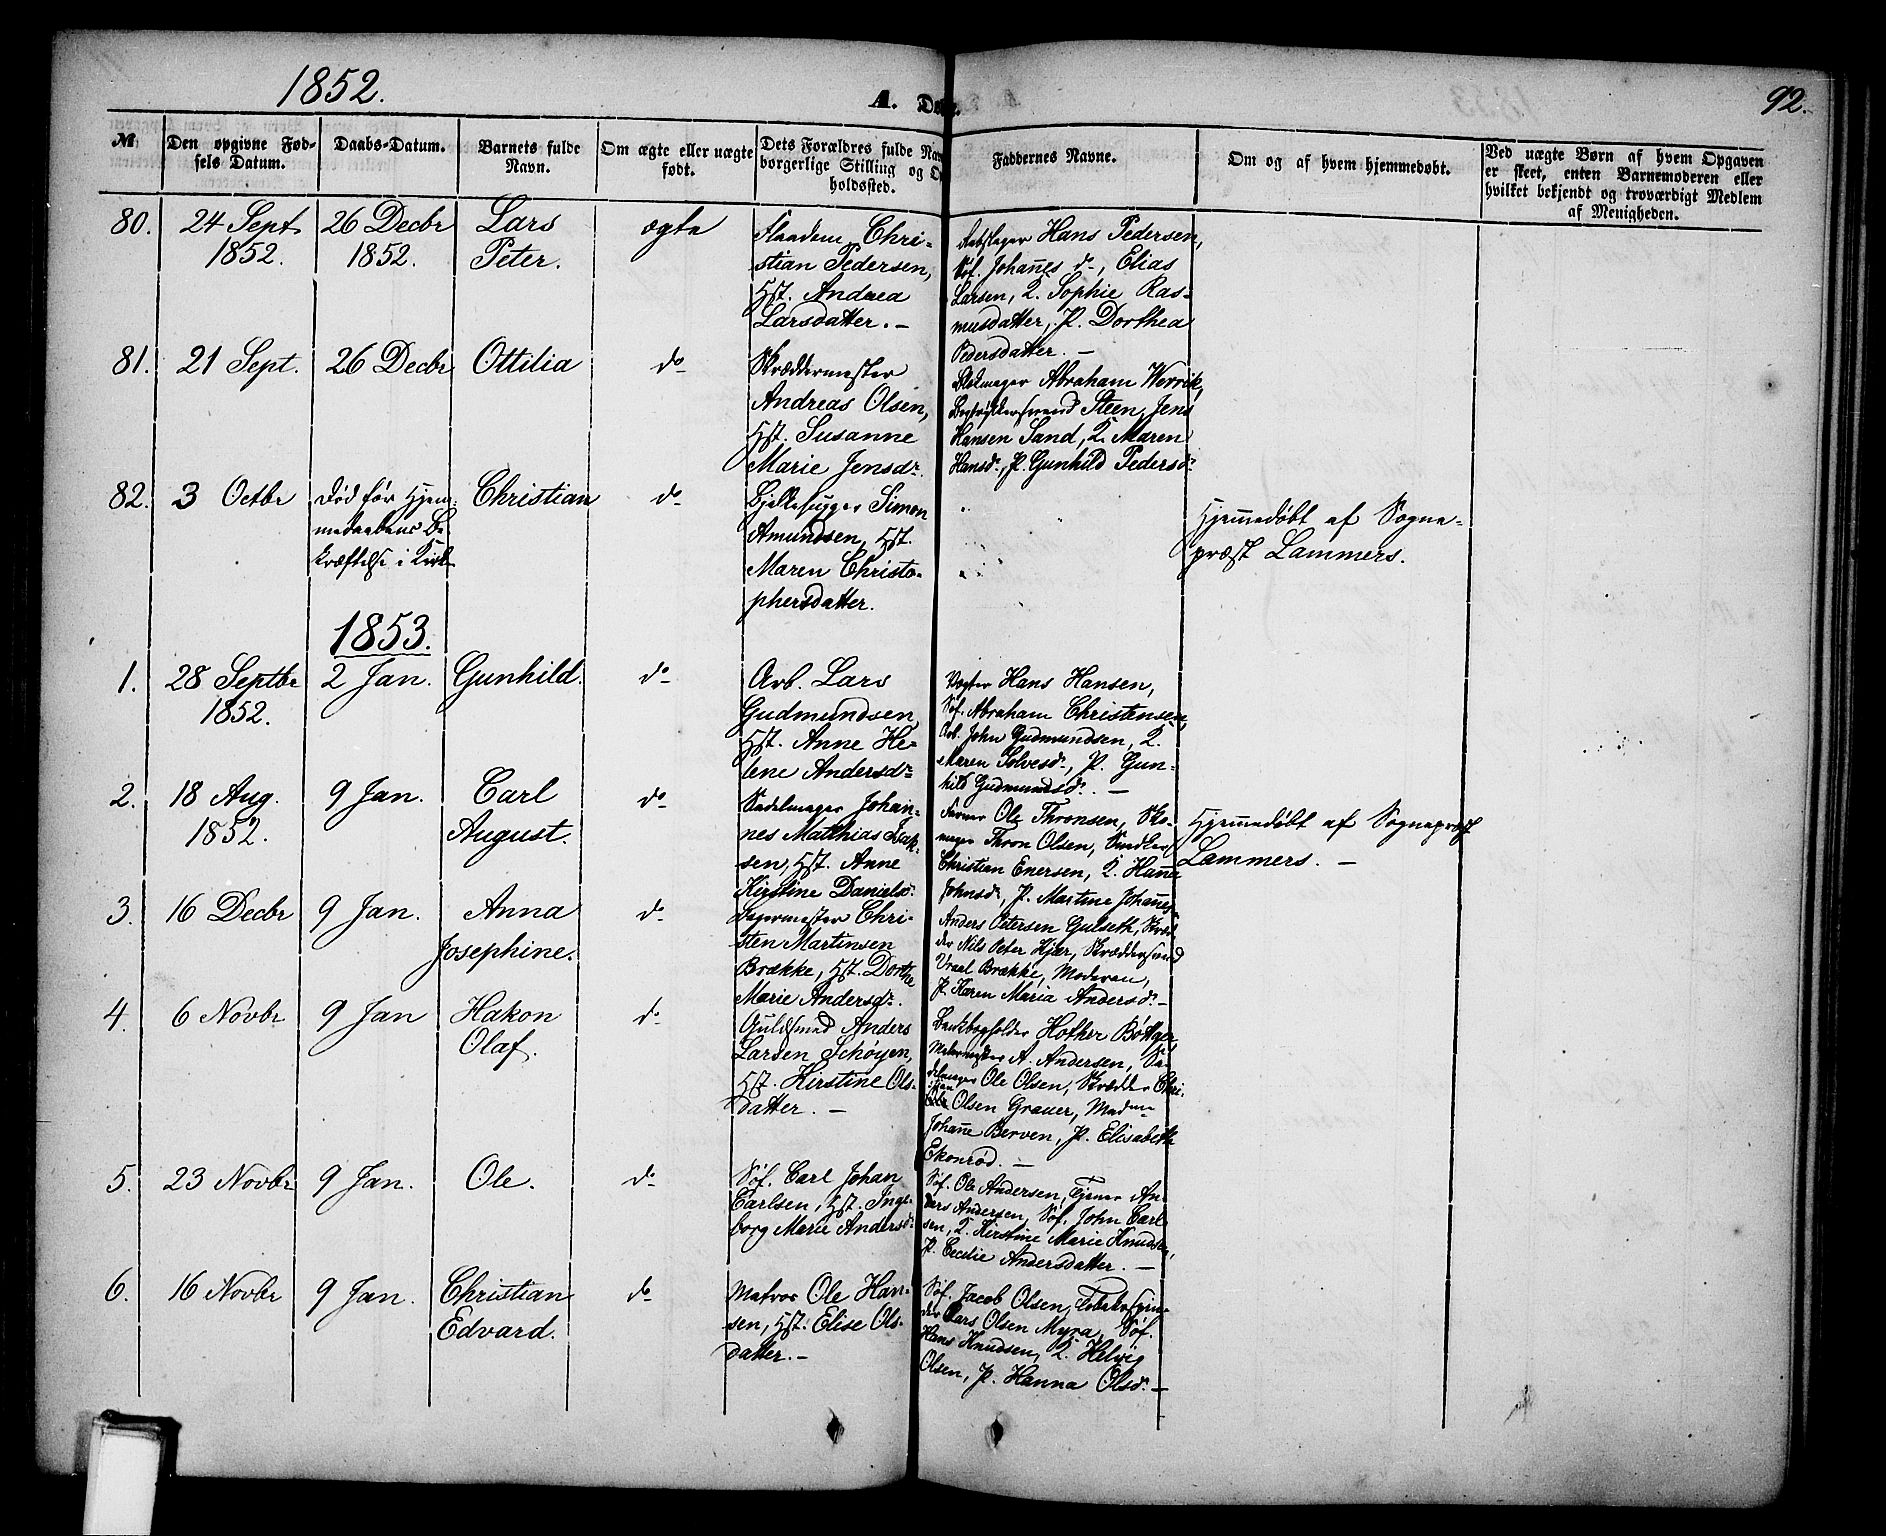 1852.
A.
92.
№
Den opgivne Fød-
sels Datum.
Daabs-Datum.
Barnets fulde
Navn.
Om ægte eller uægte
født.
Dets Forældres fulde
borgerlige Stilling og
holdssted.
Faddernes Navne.
Om og af hvem hjemmedøbt.
Ved uægte Børn af hvem Opgaven
er skeet, enten Barnemoderen eller
hvilket bekjendt og troværdigt Medlem
af Menigheden.
80.
24 Sept
1852.
26 Decbr
1852.
Lars
Peter.
ægte
Chri-
stian Pedersen,
Hst. Andrea
Larsdatter. -
Hans Pedersen,
Søf. Johanes do, Elias
Larsen, Q. Sophie Ras-
musdatter, P. Dorthea
Pedersdatter. -
81.
21 Sept.
26 Decbr
Ottilia
do
Skræddermester
Andreas Olsen,
Hst. Susanne
Marie Jensdr.
Abraham Werrik,
Steen, Jens
Hansen Sand, Q. Maren
Hansdr, P. Gunhild Pedersdr
82.
3 Octbr
Død før Hjem-
medaabens Be-
kræftelse i Kirk
Christian
do
Simon
Amundsen, Hst.
Maren Christo-
phersdatter.
Hjemedøbt af Sogne-
præst Lammers.
1853.
1.
28 Septbr
1852.
2 Jan.
Gunhild.
do
Arb. Lars
Gudmundsen
Hst. Anne He-
lene Andersdr
Vægter Hans Hansen,
Søf. Abraham Christensen,
Arb. John Gudmundsen, Q.
Maren Solvesdr, P. Gun-
hild Gudmundsdr. -
2.
18 Aug.
1852.
9 Jan.
Carl
August.
do
Sadelmager Johan-
nes Matthias Isak-
sen, Hst. Anne
Kirstine Danielsdr.
Farver Ole Thronsen, Sko-
mager Thron Olsen, Snedker
Christian Enersen, Q. Hane
Johnsdr, P. Martine Johanes
Hjemedøbt af Sognepræst
Lammers. -
3.
16 Decbr
9 Jan.
Anna
Josephine.
do
Chri-
sten Martinsen
Brække, Hst. Dorthe
Marie Andersdr.
Anders Petersen Gulseth, Skræd-
der Nils Peter Hjær, Skræddersvend
Vraal Brække, Moderen,
P. Karen Maria Andersdr. -
4.
6 Novbr
9 Jan
Hakon
Olaf.
do
Guldsmed Anders
Larsen Schøyen,
Hst. Kirstine Ols-
datter. -
Bankbogholder Hother Bøttger
Malermester A. Andersen, Sa-
delmager Ole Olsen, Skrædder Chri-
stian
Olsen Grauer, Madme
Johane Berven, P. Elisabeth
Ekonrød. -
5.
23 Novbr
9 Jan.
Ole.
do
Søf. Carl Johan
Carlsen, Hst. Inge-
borg Marie Andersdr
Søf. Ole Andersen, Tjener An-
ders Andersen, Søf. John Carl-
sen, Q. Kirstine Marie Knudsen,
P. Cecilie Andersdatter. -
6.
16 Novbr
9 Jan.
Christian
Edvard.
do
Matros Ole Han-
sen, Hst. Elise Ols-
datter. -
Søf. Jacob Olsen, Tobaksspin-
der Lars Olsen Myra, Søf.
Hans Knudsen, Q. Helvig
Olsen, P. Hanna Olsdr. -